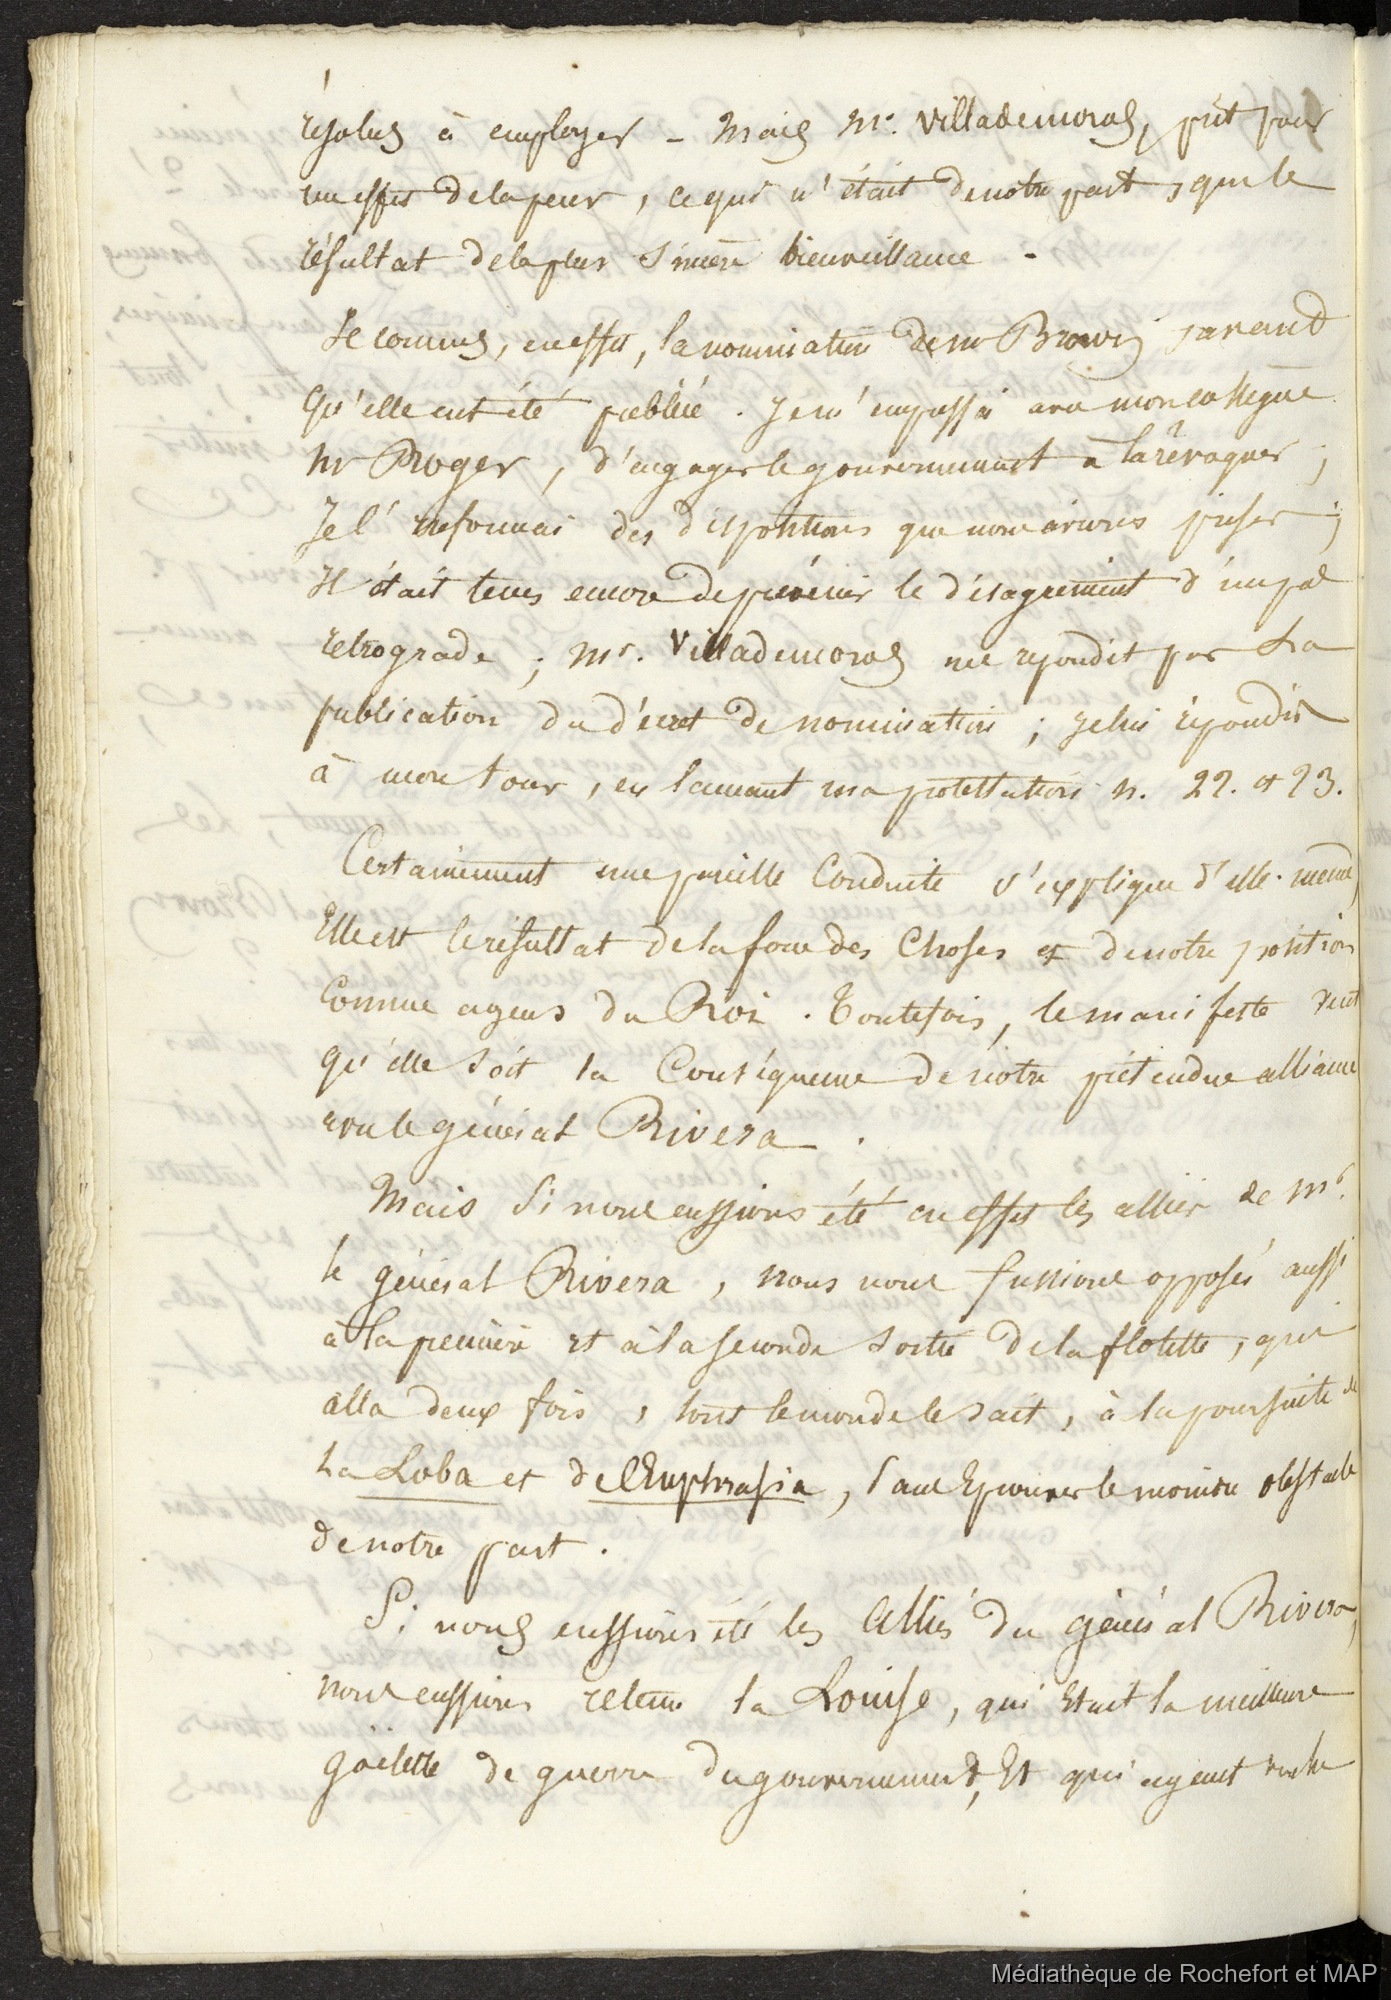 résolus à employer - Mais Mr. Villademoros, prit pour
un effet de la peur, ce qui n'était de notre part, que le
résultat de la plus sincère bienveillance -
Je connus, en effet, la nomination de mr Brown, avant
qu'elle eut été publiée. Je m'empressai avec mon collègue
Mr Roger, d'engager le gouvernement à la révoquer;
Je l'informai des dispositions que nous avions prises;
Il était tems encore de prévenir le désagrément d'un pas
retrograde; Mr. Villademoros me repondit par La
publication du décret de nomination; je lui répondis
à mon tour, en lançant ma protestation n. 22. et 23.
Certainement une pareille Conduite s'explique d'elle-même,
Elle est le résultat de la force des Choses et de notre position
Comme agens du Roi. Toutefois, le manifeste veut
qu'elle soit la Conséquence de notre prétendue alliance
avec le général Rivera.
Mais Si nous eussions été en effet les alliés de Mr.
le général Rivera, nous nous fussions opposés aussi
à la première et à la seconde sortie de la flotille, qui
alla deux fois, tout le monde le sait, à la poursuite de
La Loba et de l'Euphrasia, Sans Eprouver le moindre obstacle
de notre part.
Si nous eussions été les Alliés du général Rivera,
nous eussions retenu la Louise, qui Etait la meilleure
goelette de guerre du gouvernement, Et qui ayant